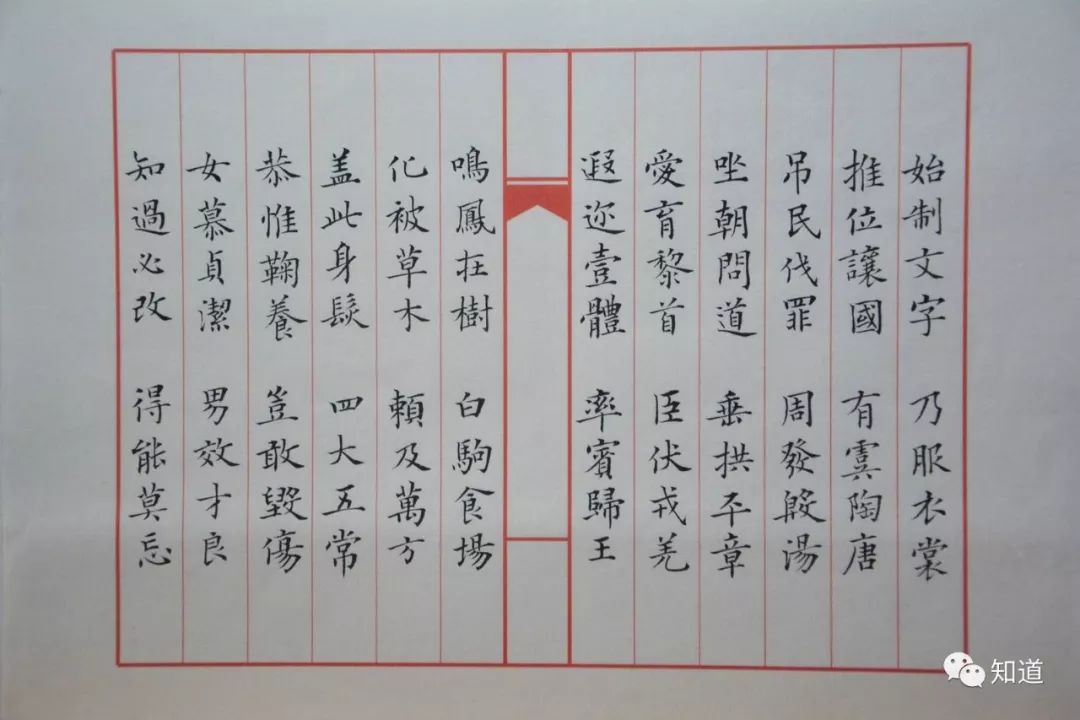 始制文字 乃服衣裳
推位讓國 有虞陶唐
吊民伐罪 周發殷湯
坐朝問道 垂拱平章
愛育黎首 臣伏戎羌
遐迩壹體 率賓歸王
鳴鳳在樹 白駒食場
化被草木 賴及萬方
盖此身髮 四大五常
恭惟鞠養 豈敢毀傷
女慕貞潔 男效才良
知過必改 得能莫忘
知道